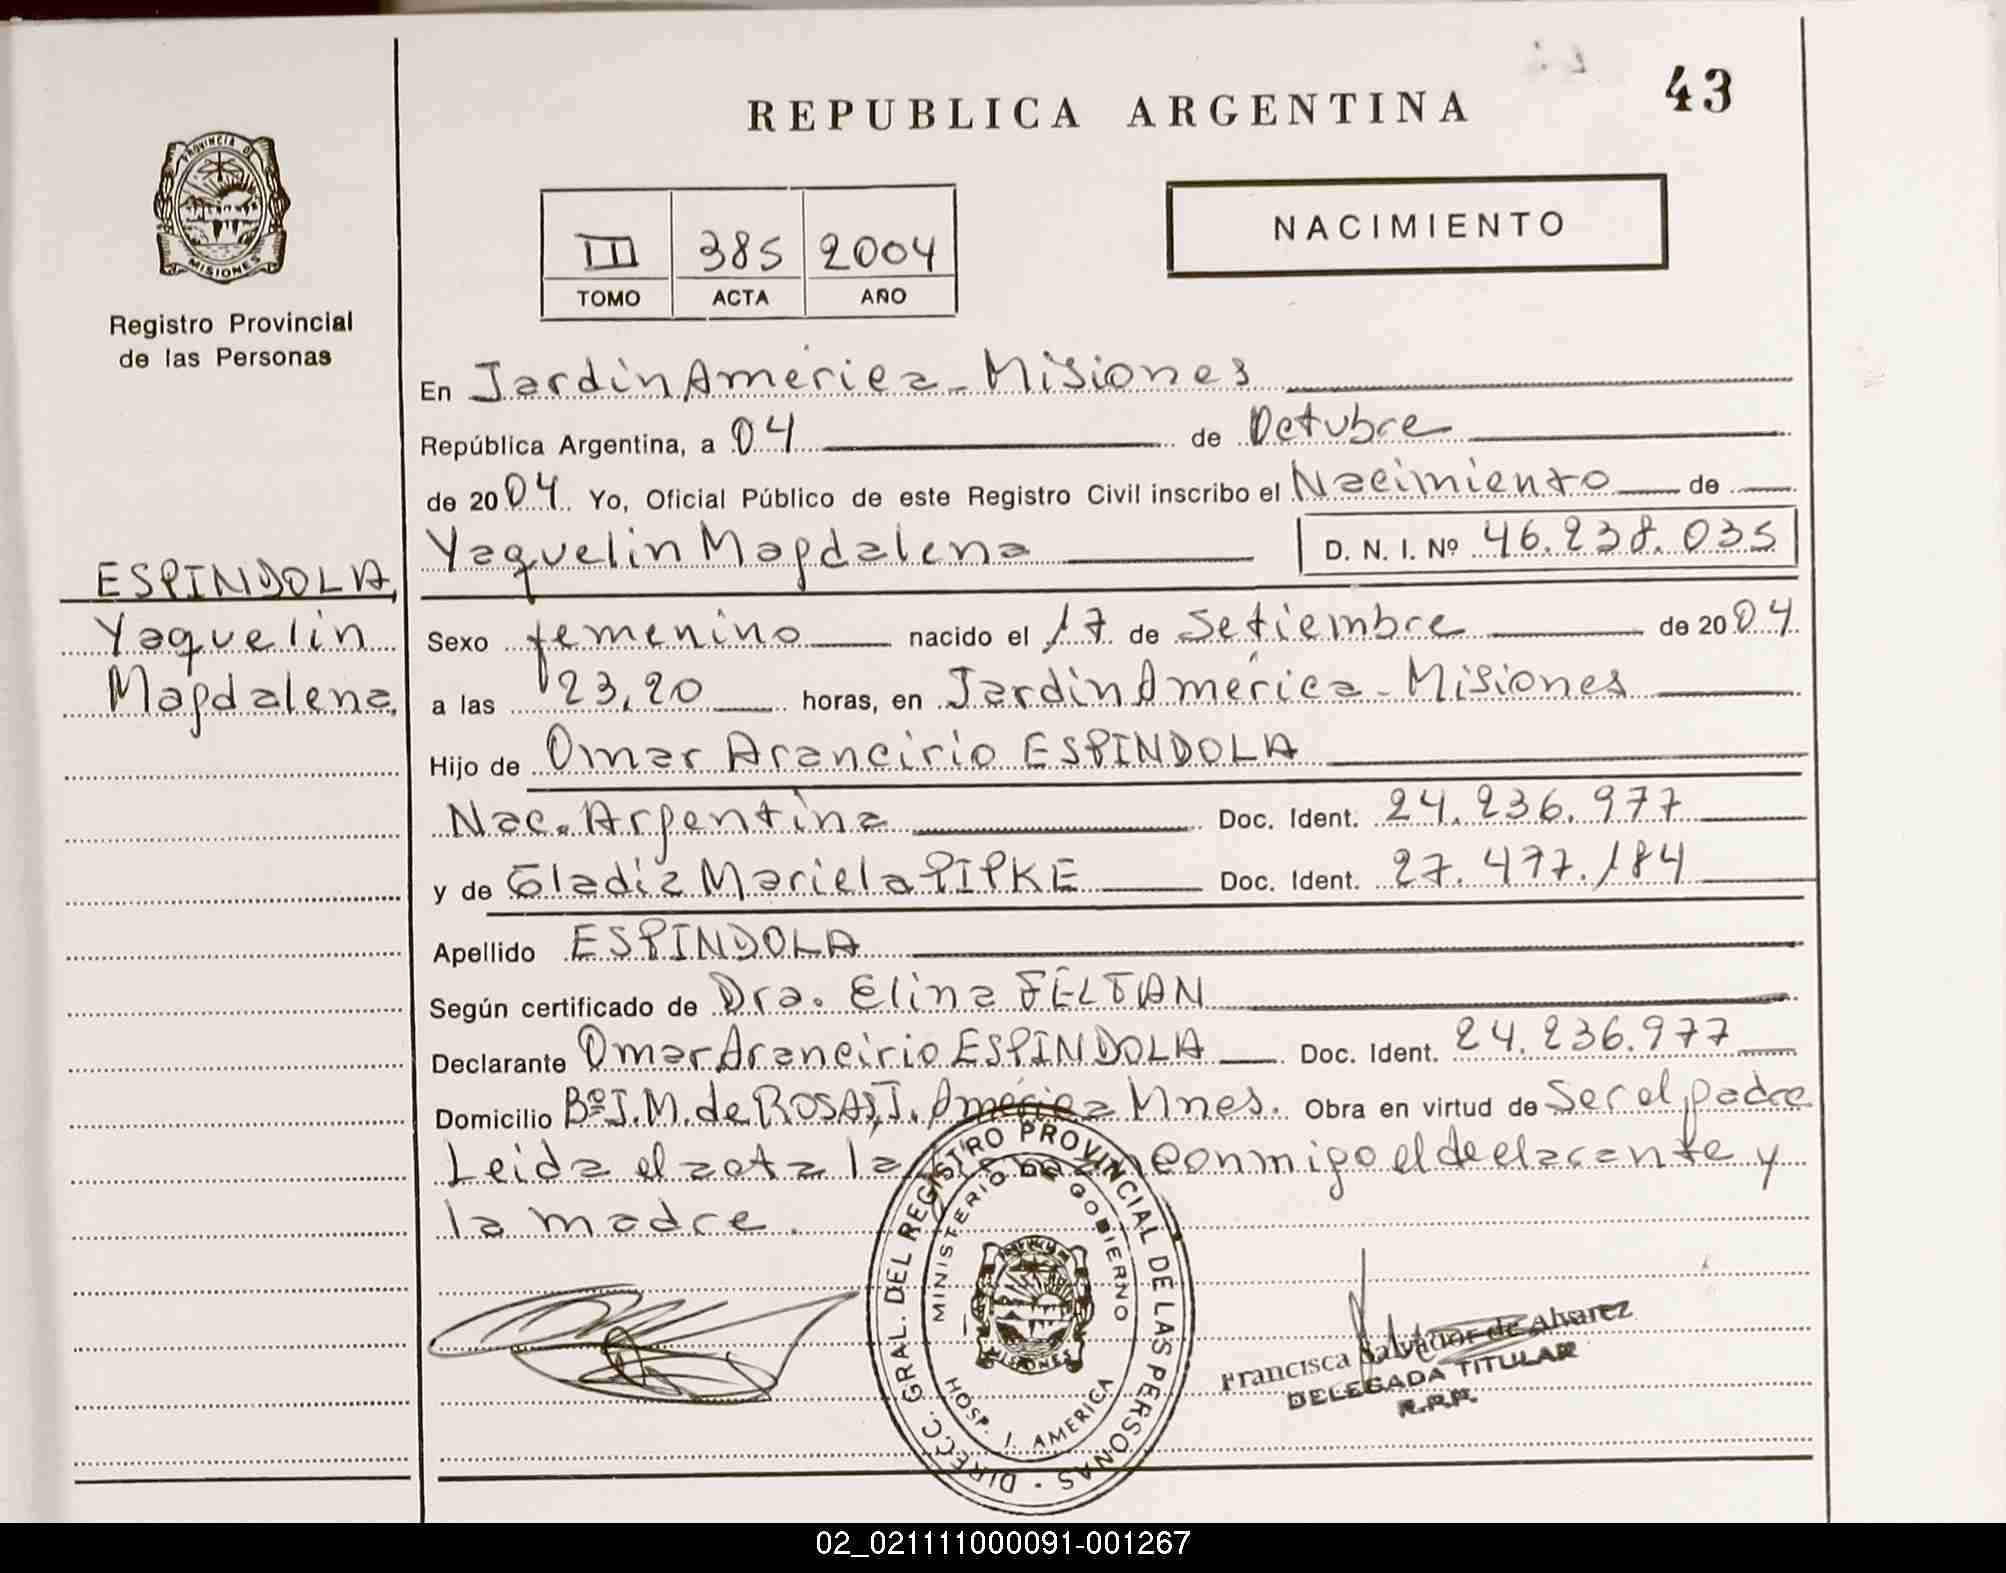 REPUBLICA ARGENTINA
43
PROVINCIA DE
MISIONES
Registro Provincial
de las Personas
III 385 2004
TOMO ACTA AÑO
NACIMIENTO
En Jardín América - Misiones
República Argentina, a 04 de Octubre
de 2004. Yo, Oficial Público de este Registro Civil inscribo el Nacimiento de
Yaquelin Magdalena D. N. I. Nº 46.238.035
ESPINDOLA,
Yaquelin
Magdalena,
Sexo femenino nacido el 17 de Setiembre de 2004.
a las 23,20 horas, en Jardín América - Misiones
Hijo de Omar Arancirio ESPINDOLA
Nac. Argentina Doc. Ident. 24.236.977
y de Gladiz Mariela PIPKE Doc. Ident. 27.477.184
Apellido ESPINDOLA
Según certificado de Dra. Elina FELTAN
Declarante Omar Arancirio ESPINDOLA Doc. Ident. 24.236.977
Domicilio Bº J.M. de ROSAS, J. América Mnes. Obra en virtud de Ser el padre
Leida el acta la conmigo el declarante y
la madre.
DIRECC. GRAL. DEL REGISTRO PROVINCIAL DE LAS PERSONAS -
MINISTERIO DE GOBIERNO
MISIONES
HOSP. J. AMERICA
Francisca Salvador de Alvarez
DELEGADA TITULAR
R.P.P.
02_021111000091-001267